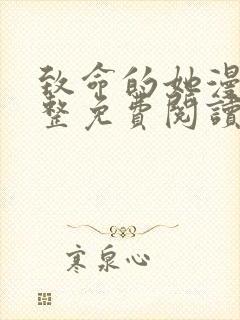 致命的她漫
整免費閱讀
寒泉心